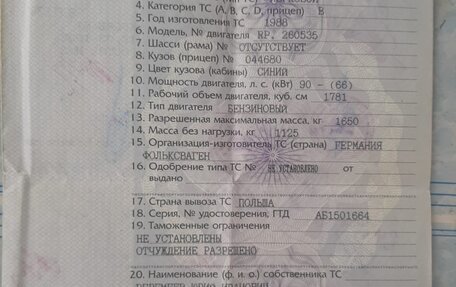 4. Категория ТС (A, B, C, D, прицеп) B
5. Год изготовления ТС 1988
6. Модель, № двигателя RP. 260535
7. Шасси (рама) № ОТСУТСТВУЕТ
8. Кузов (прицеп) № 044680
9. Цвет кузова (кабины) СИНИЙ
10. Мощность двигателя, л. с. (кВт) 90 – (66)
11. Рабочий объем двигателя, куб. см 1781
12. Тип двигателя БЕНЗИНОВЫЙ
13. Разрешенная максимальная масса, кг 1650
14. Масса без нагрузки, кг 1125
15. Организация-изготовитель ТС (страна) ГЕРМАНИЯ
ФОЛЬКСВАГЕН
16. Одобрение типа ТС № НЕ УСТАНОВЛЕНО от
выдано
17. Страна вывоза ТС ПОЛЬША
18. Серия, № удостоверения, ГТД АБ1501664
19. Таможенные ограничения
НЕ УСТАНОВЛЕНЫ
ОТЧУЖДЕНИЕ РАЗРЕШЕНО
20. Наименование (ф. и. о.) собственника ТС